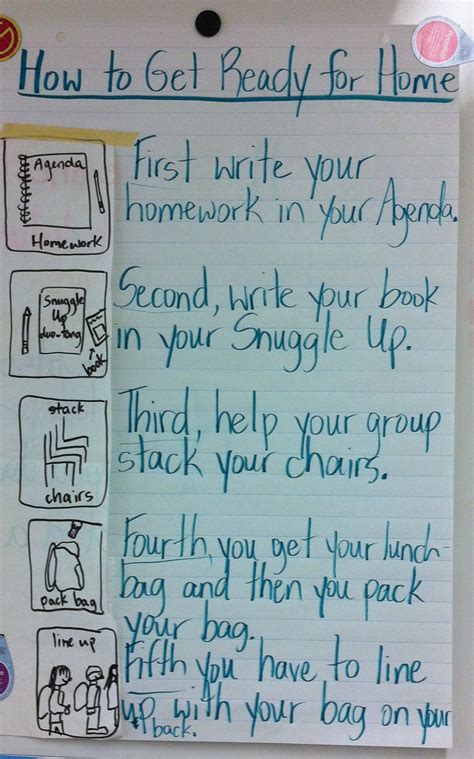 How to Get Ready for Home
Agenda
Homework
First write your
homework in your Agenda.
Snuggle
Up
duo-tang
book
Second, write your book
in your Snuggle Up.
stack
chairs
Third, help your group
stack your chairs.
pack bag
Fourth, you get your lunch-
bag and then you pack
your bag.
line up
Fifth you have to line
up with your bag on your
back.